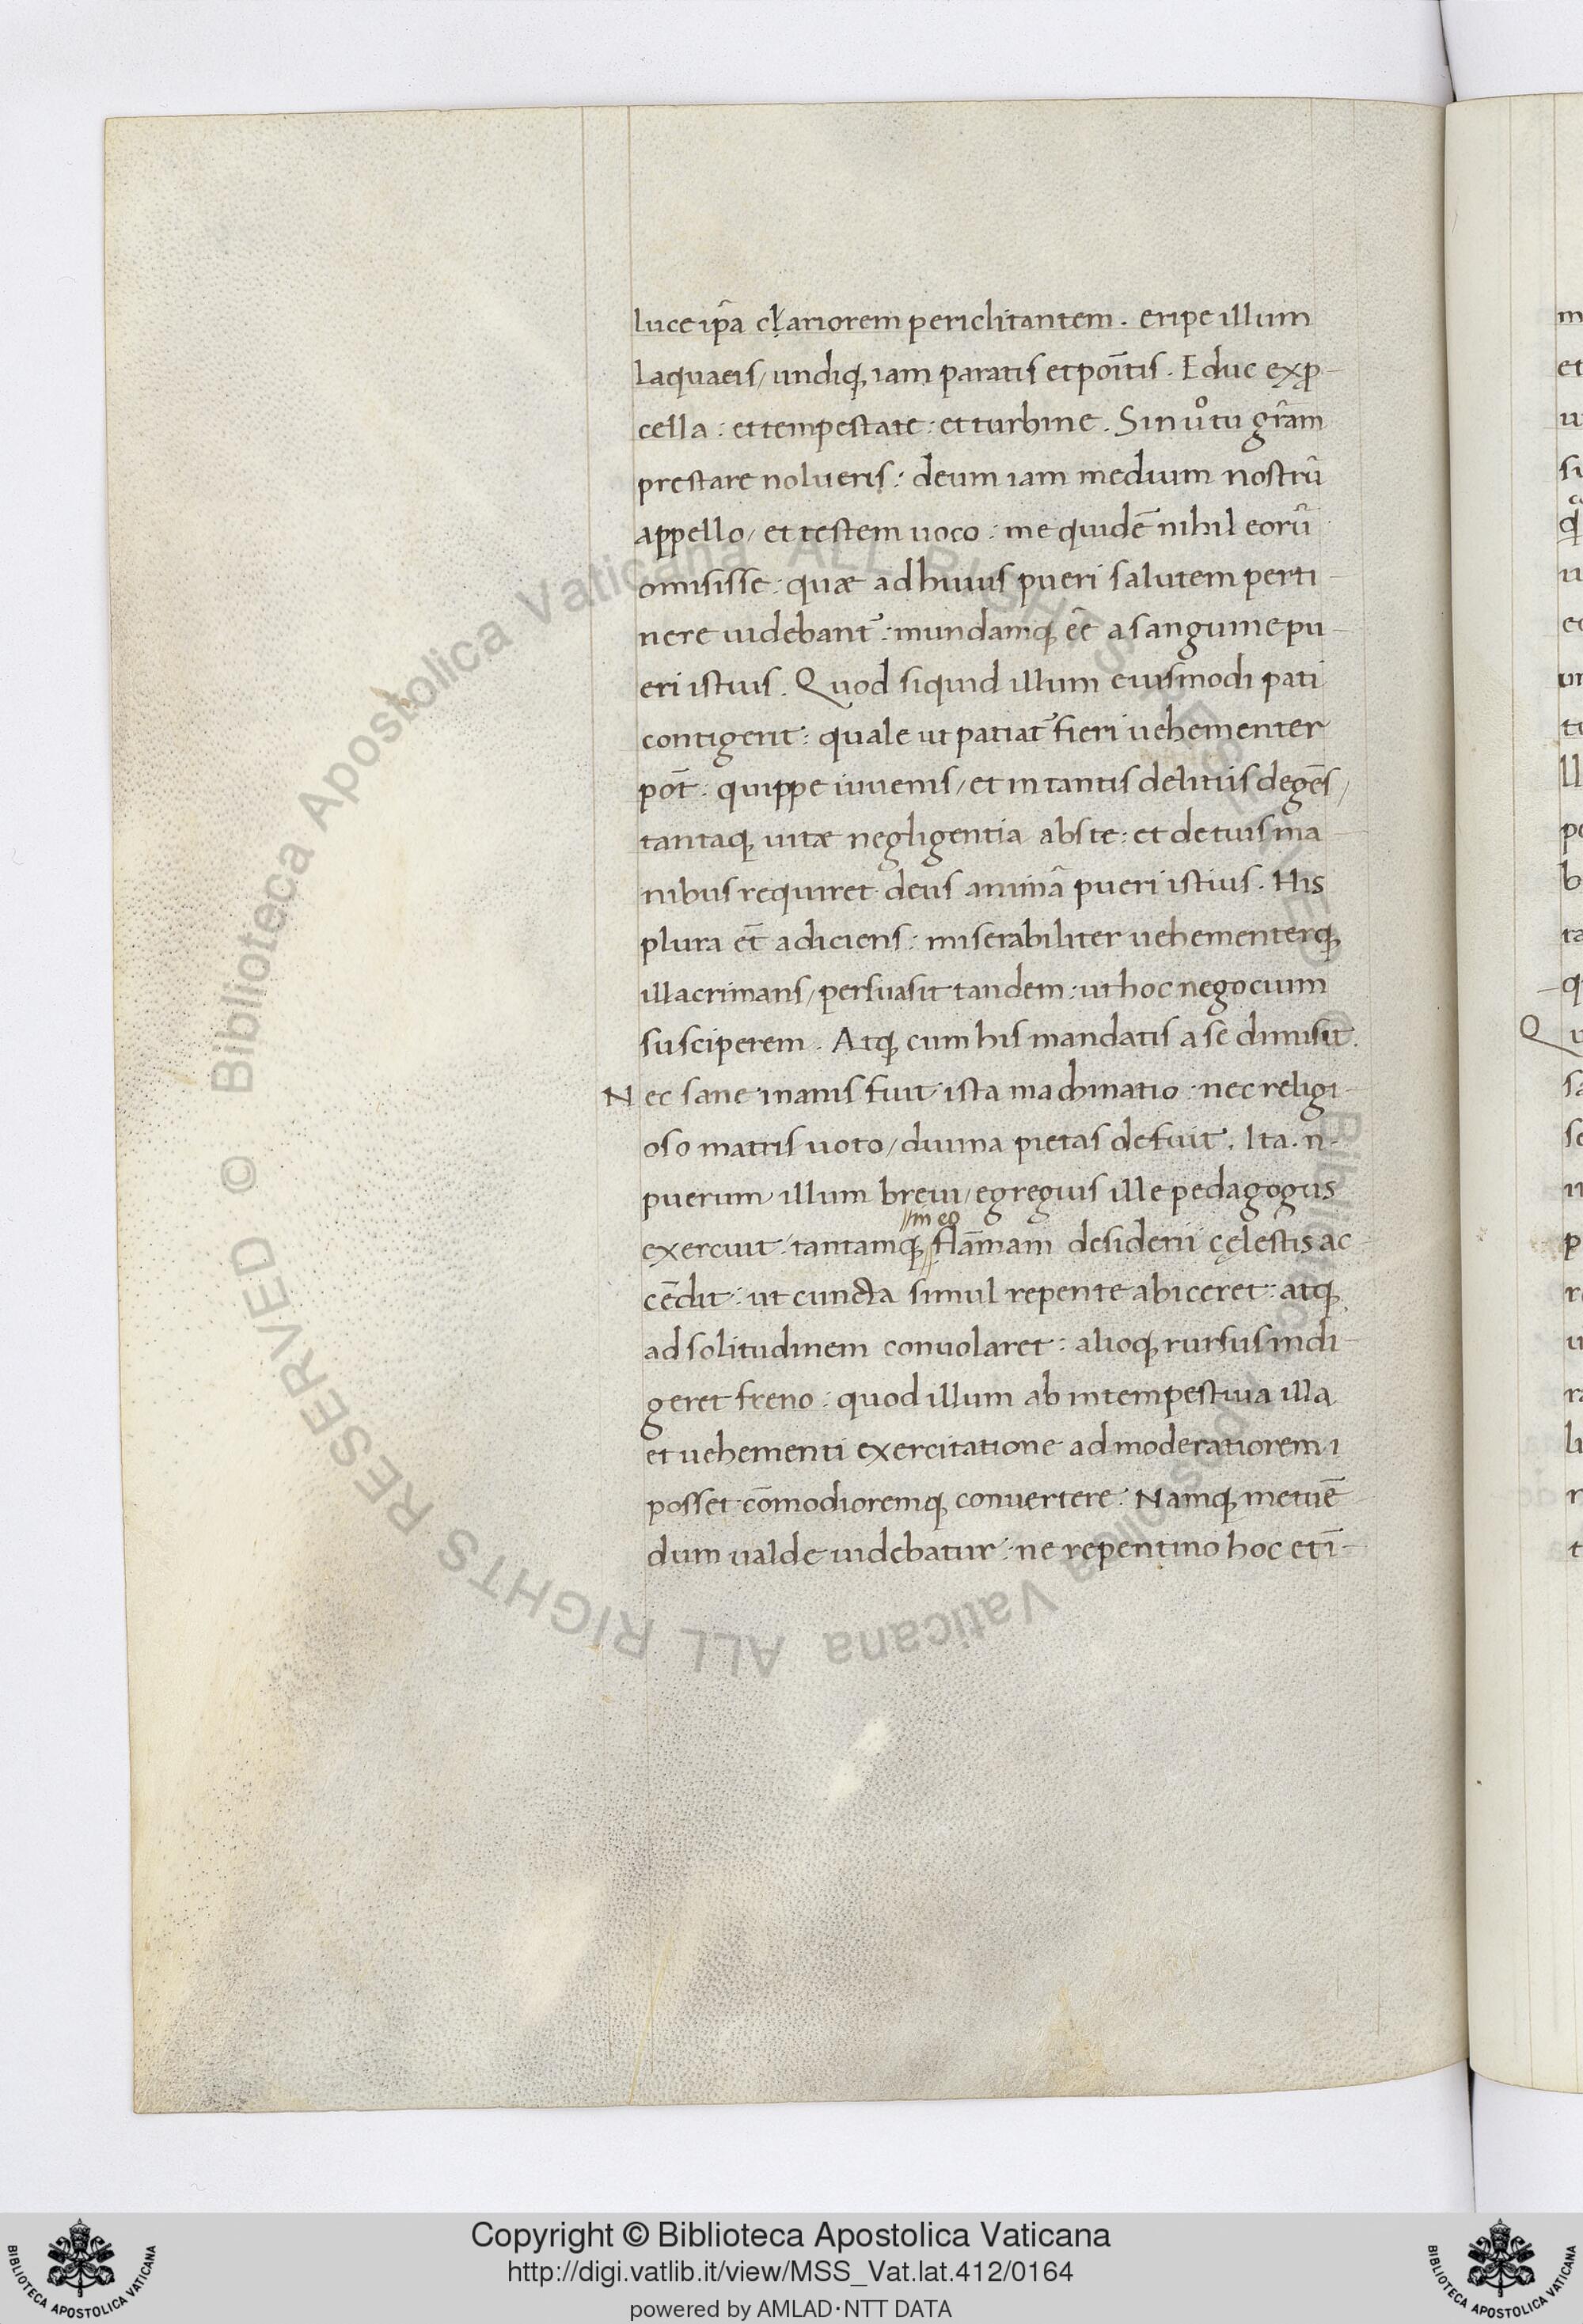 luce ip̃a cl̨ariorem periclitantem. eripe illum
laquaeis/ undiq; iam paratis et poĩtis. Educ ex ꝓ-
cella: et tempestate: et turbine. Sin ůo tu grãm
prestare nolueris: deum iam medium nostrũ
appello/ et testem uoco: me quidẽ nihil eorũ
omisisse: quæ ad huius pueri salutem perti-
nere uidebant᷑: mundamq; eẽ a sanguine pu-
eri istius. Quod siquid illum eiusmodi pati
contigerit: quale ut patiat᷑ fieri uehementer
põt: quippe iuuenis/ et in tantis delitiis degẽs/
tantaq; uitæ negligentia abs te: et de tuis ma-
nibus requiret deus animã pueri istius. His
plura et̃ adiciens: miserabiliter uehementerq;
illacrimans/ persuasit tandem: ut hoc negocium
susciperem. Atq; cum his mandatis a se dimisit.
Nec sane inanis fuit ista machinatio: nec religi-
oso matris uoto/ diuina pietas defuit. Ita .n.
puerum illum breui/ egregius ille pedagogus
exercuit: tantamq; // flãmam desiderii cęlestis ac-
//in eo
cẽdit: ut cuncta simul repente abiceret: atq;
ad solitudinem conuolaret: alioq; rursus indi-
geret freno: quod illum ab intempestiua illa
et uehementi exercitatione ad moderatiorem ı
posset cõmodioremq; conuertere. Namq; metuẽ-
dum ualde uidebatur: ne repentino hoc et ĩ-
Copyright © Biblioteca Apostolica Vaticana
http://digi.vatlib.it/view/MSS_Vat.lat.412/0164
powered by AMLAD·NTT DATA
BIBLIOTECA APOSTOLICA VATICANA
BIBLIOTECA APOSTOLICA VATICANA
© Biblioteca Apostolica Vaticana ALL RIGHTS RESERVED © Biblioteca Apostolica Vaticana ALL RIGHTS RESERVED